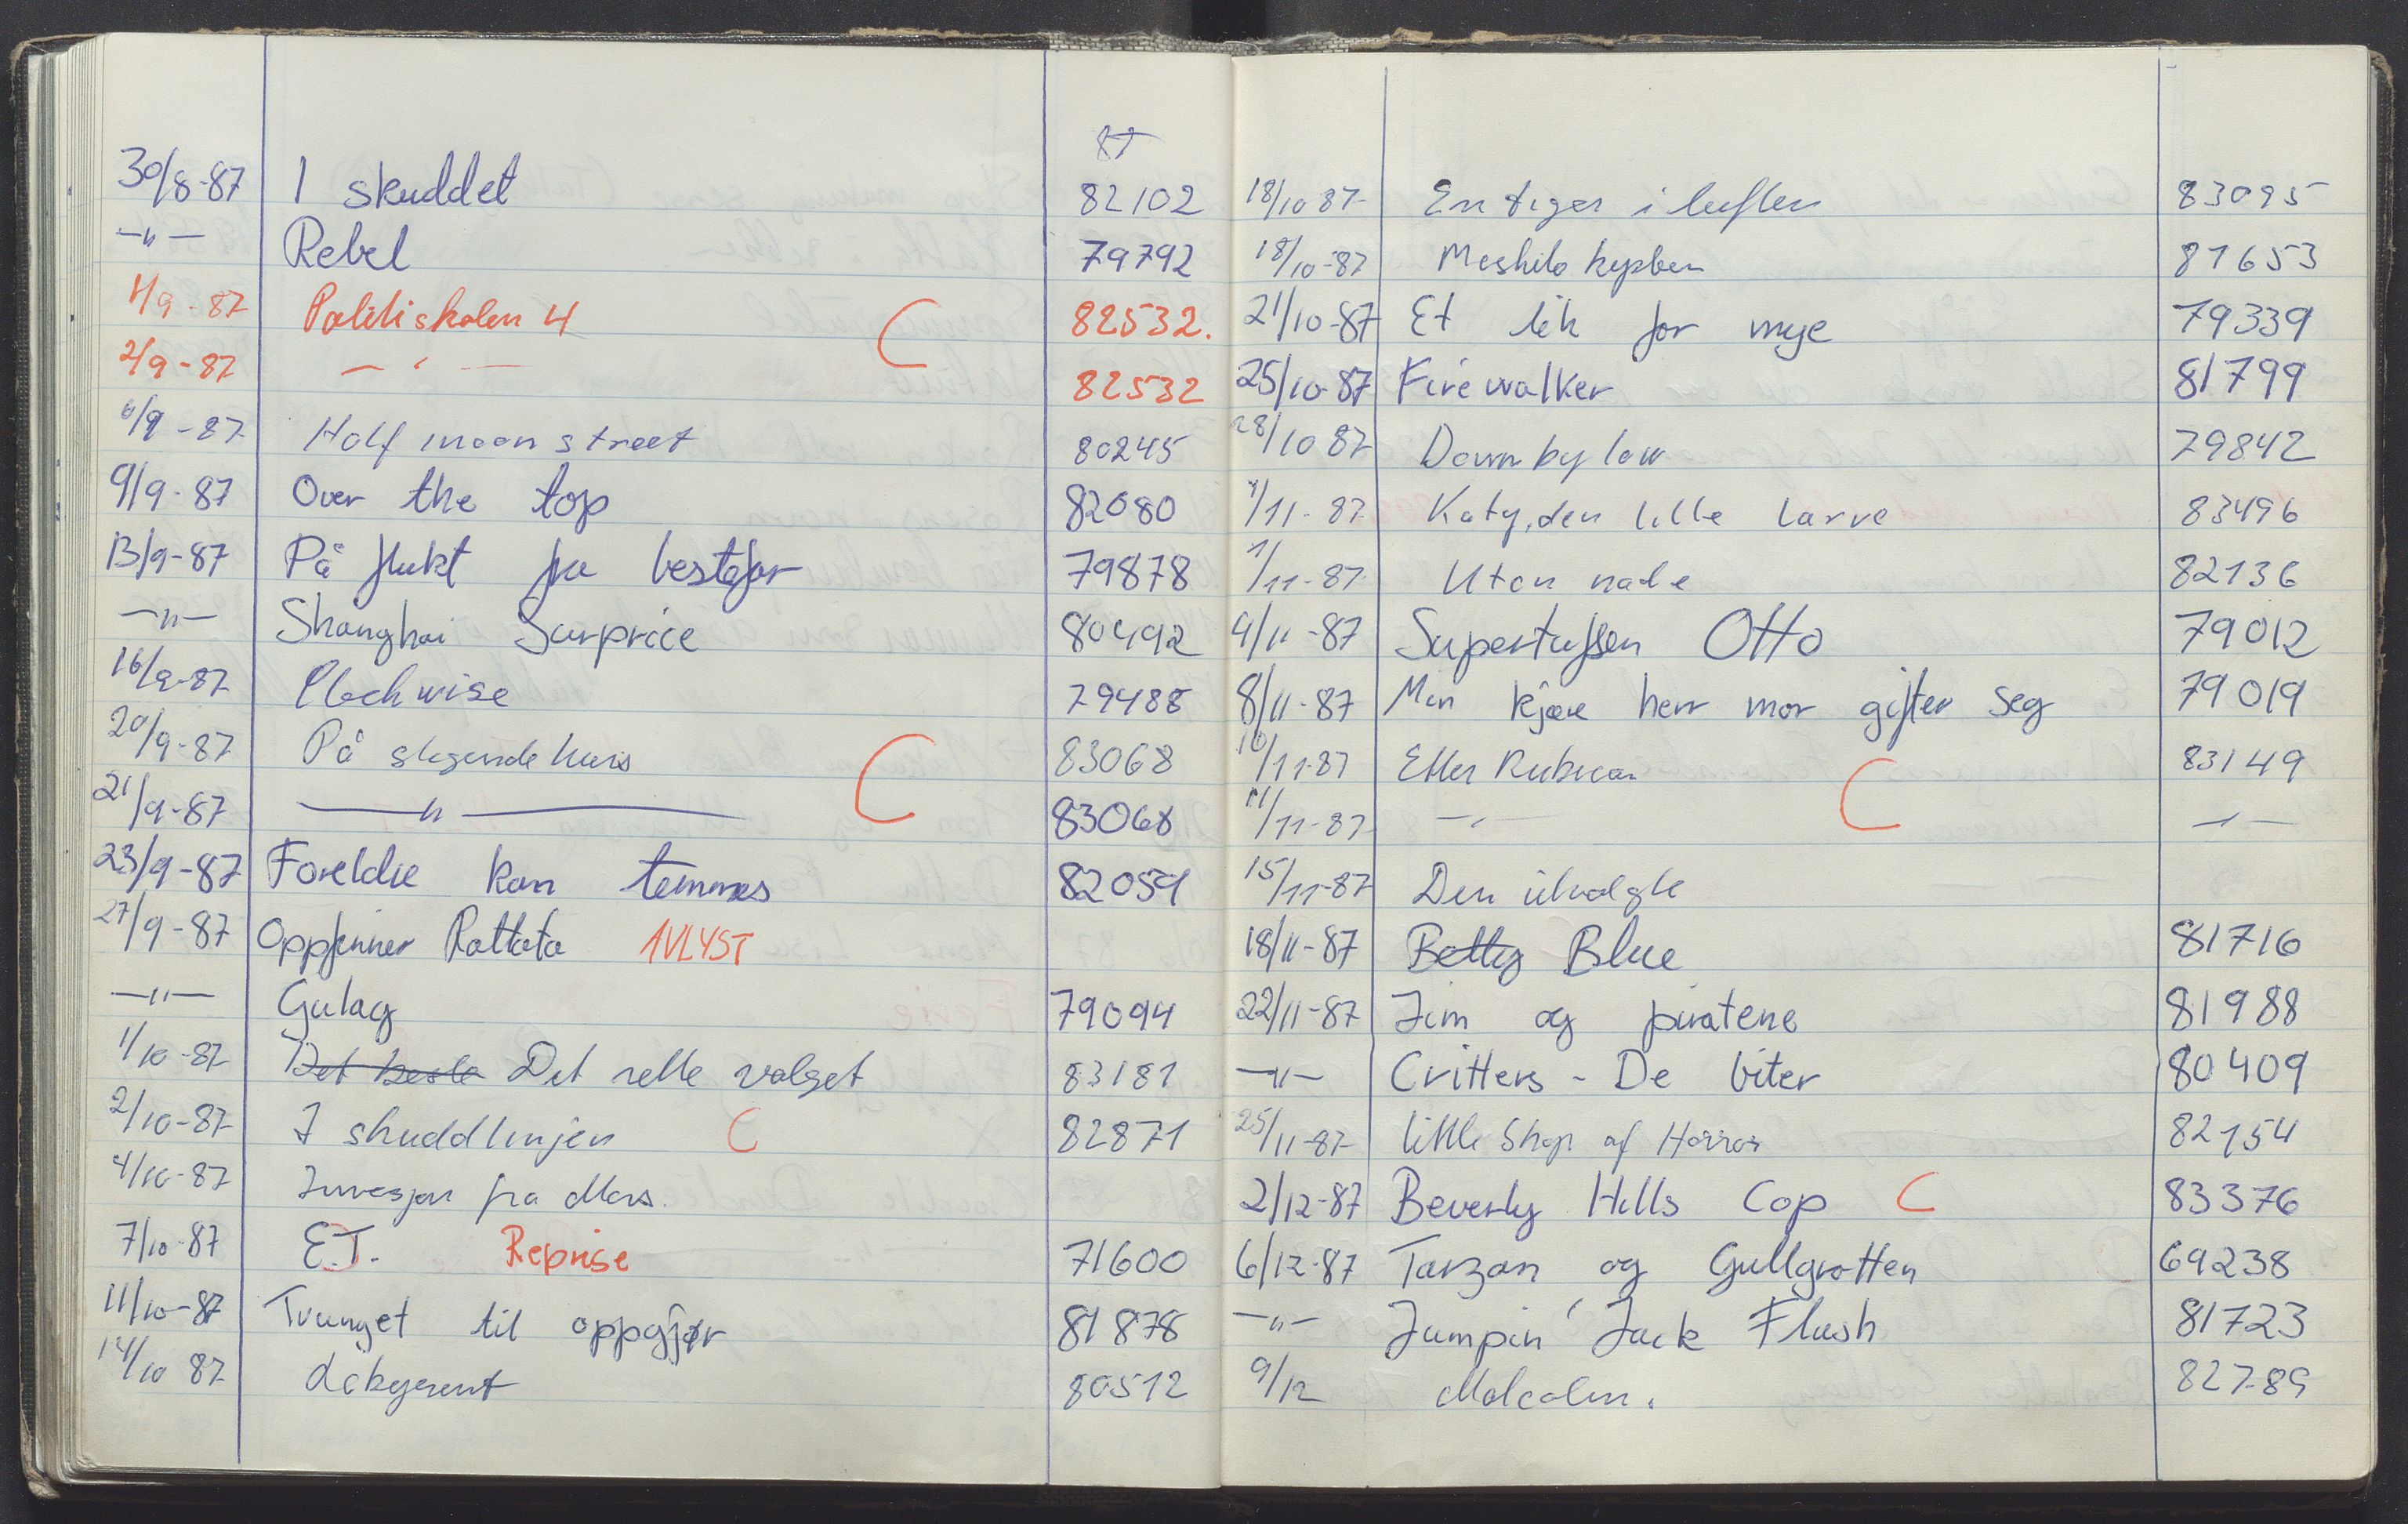 87
30/8-87 I skuddet 82102
-"- Rebel 79792
1/9-87 Politiskolen 4 C 82532.
2/9-87 - " - 82532
6/9-87 Half moon street 80245
9/9-87 Over the top 82080
13/9-87 På flukt fra bestefar 79878
-"- Shanghai Surprice 80492
16/9-87 Clockwise 79488
20/9-87 På slagende kurs C 83068
21/9-87 -"- 83068
23/9-87 Foreldre kan temmes 82059
27/9-87 Oppfinner Rattata AVLYST
-"- Gulag 79094
1/10-87 Det beste Det rette valget 83181
2/10-87 I skuddlinjen C 82871
4/10-87 Invasjon fra Mars.
7/10-87 E.T. Reprise 71600
11/10-87 Tvunget til oppgjør 81878
14/10 87 80512
18/10 87 En tiger i luften 83095
18/10-87 81653
21/10-87 Et lik for mye 79339
25/10-87 Firewalker 81799
28/10 87 Down by law 79842
1/11-87 Katy, den lille larve 83496
1/11-87 Uten nåde 82136
4/11-87 Supertuffsen Otto 79012
8/11-87 Min kjære herr mor gifter seg 79019
10/11-87 Etter Rubicon C 83149
11/11-87 -"- -"-
15/11-87 Den utvalgte
18/11-87 Betty Blue 81716
22/11-87 Jim og piratene 81988
-"- Critters - De biter 80409
25/11-87 little Shop of Horror 82154
2/12-87 Beverly Hills Cop C 83376
6/12-87 Tarzan og Gullgrotten 69238
-"- Jumpin' Jack Flash 81723
9/12 Malcolm. 82789